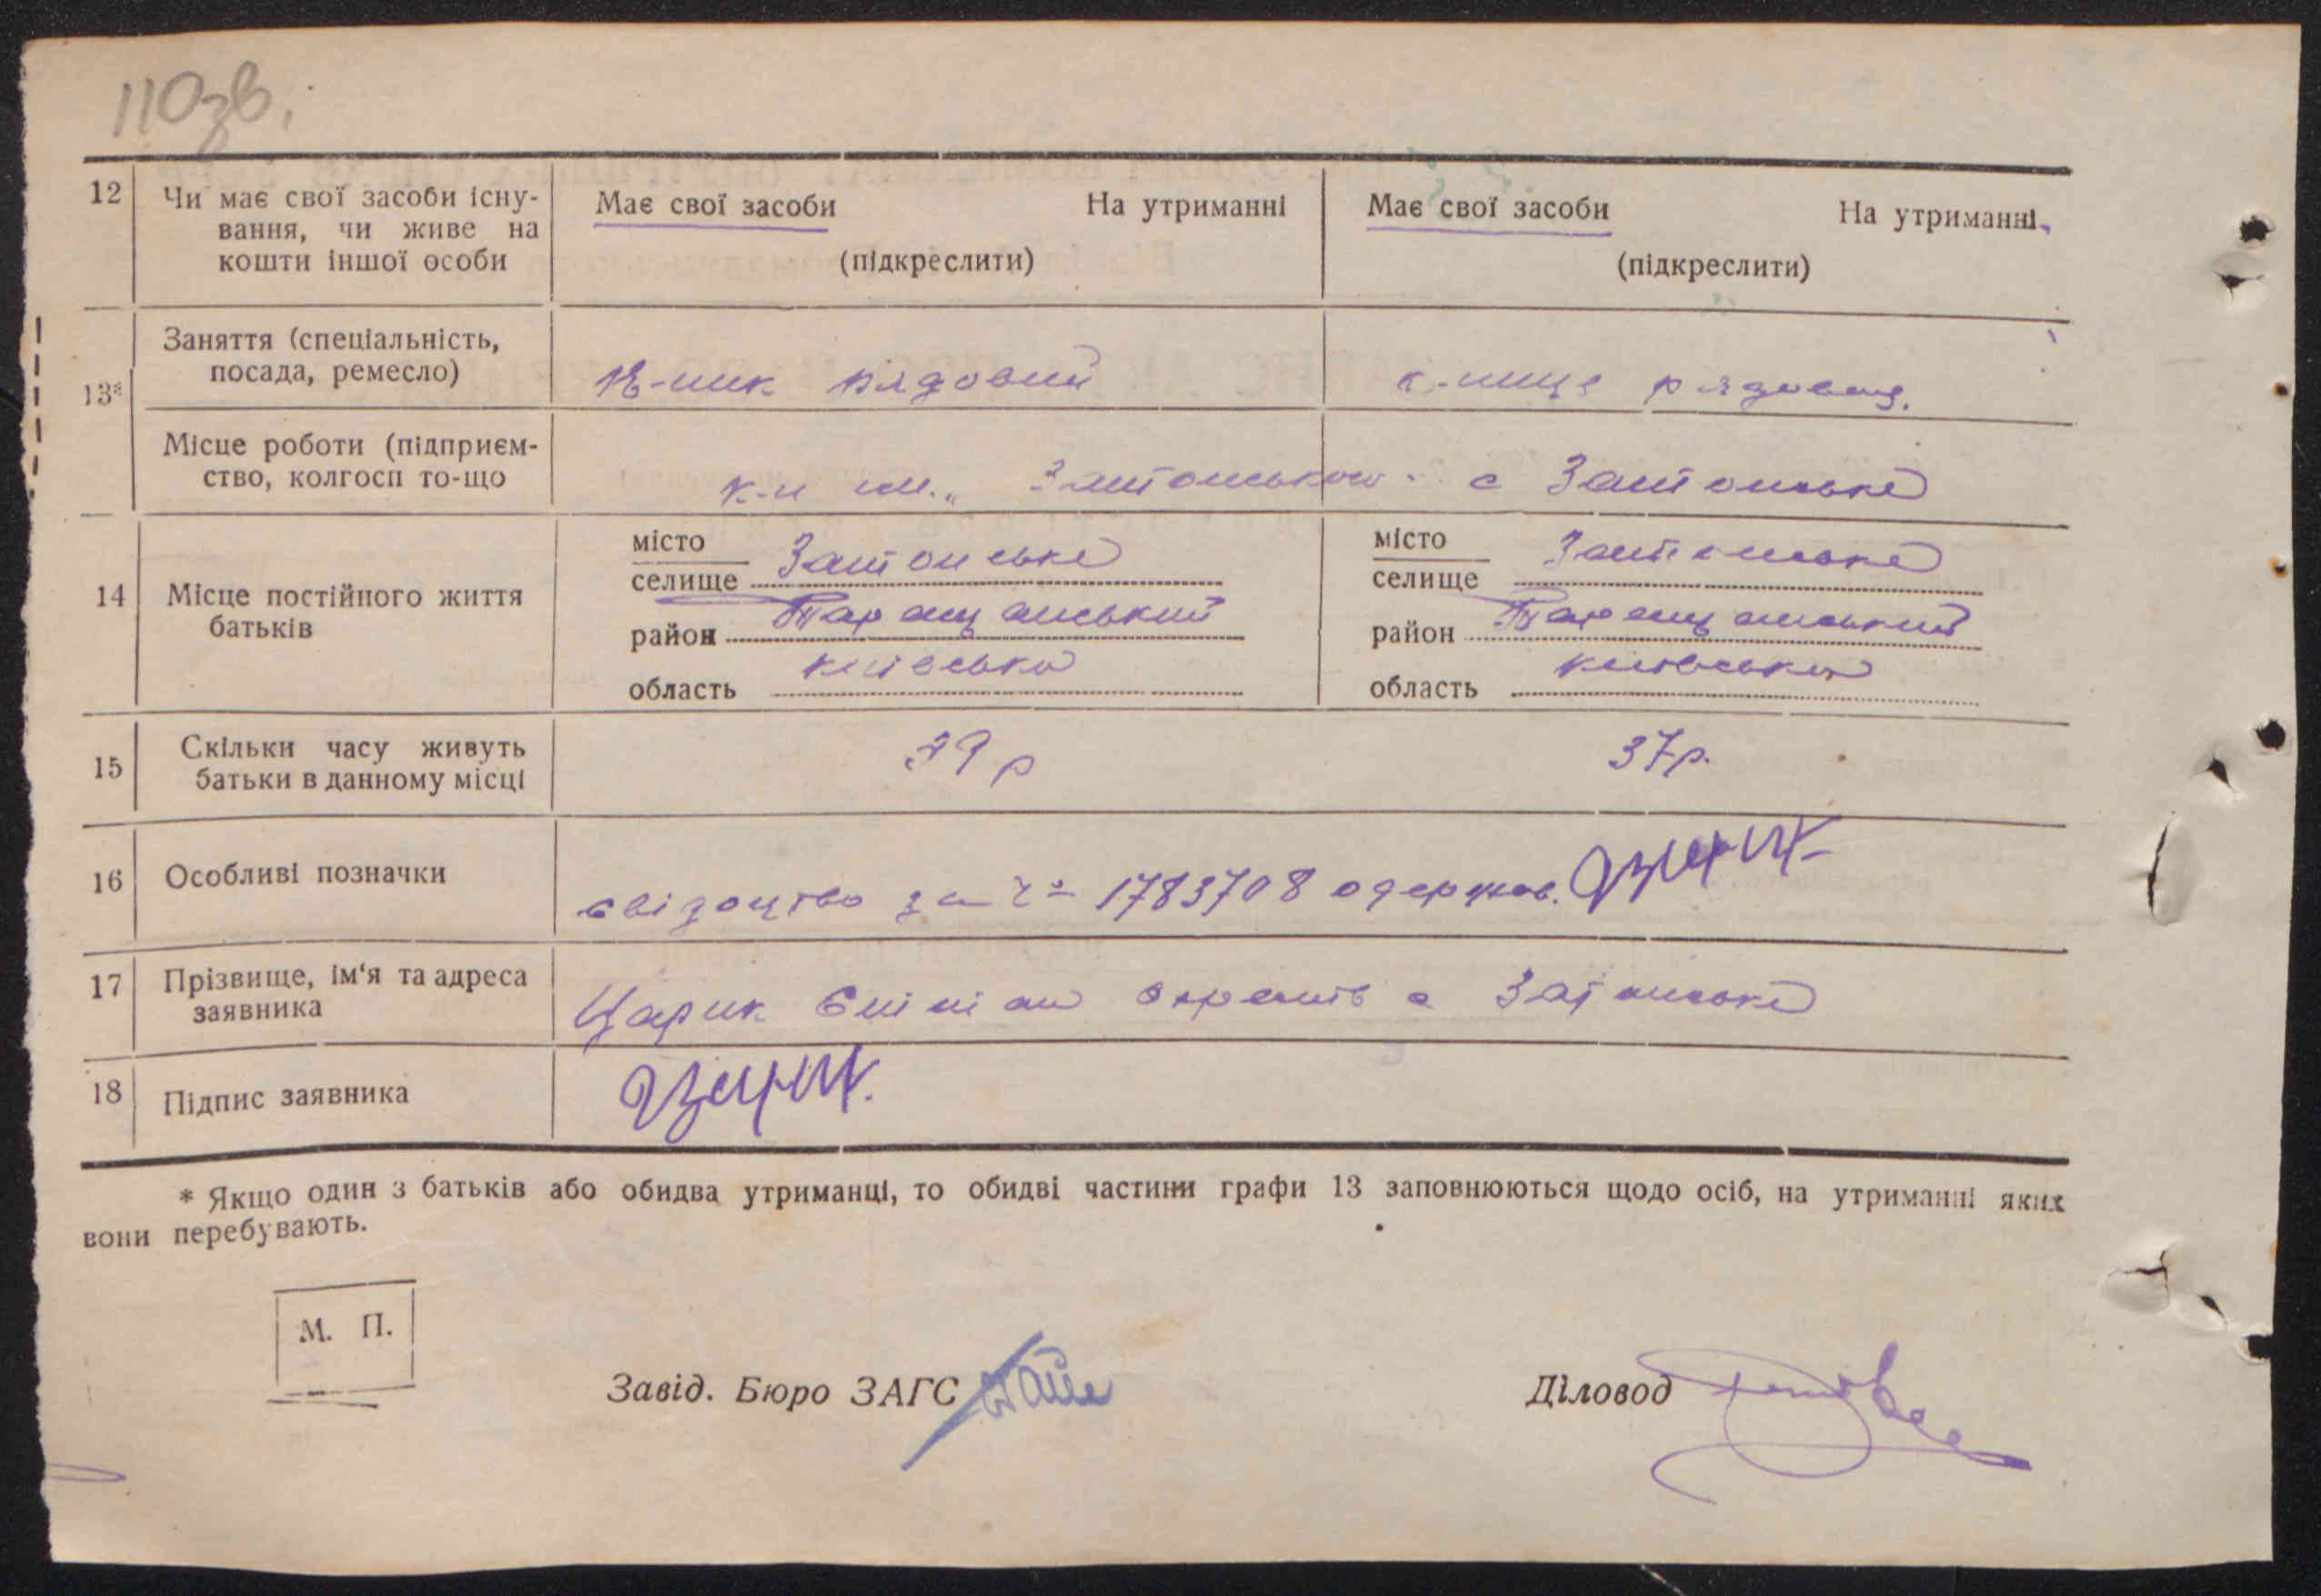 110зв.
12 Чи має свої засоби існу-
вання, чи живе на
кошти іншої особи
Має свої засоби На утриманні
(підкреслити)
Має свої засоби На утриманні
(підкреслити)
13* Заняття (спеціальність,
посада, ремесло)
к-ник рядовий
к-ниця рядова.
Місце роботи (підприєм-
ство, колгосп то-що
к-п с
14 Місце постійного життя
батьків
місто
селище
район Таращанський
область київська
місто
селище
район Таращанський
область київська
15 Скільки часу живуть
батьки в данному місці
39 р
37 р.
16 Особливі позначки
свідоцтво за № 1783708 одержав.
17 Прізвище, ім‘я та адреса
заявника
Царик с
18 Підпис заявника
* Якщо один з батьків або обидва утриманці, то обидві частини графи 13 заповнюються щодо осіб, на утриманні яких
вони перебувають.
М. П.
Завід. Бюро ЗАГС
Діловод